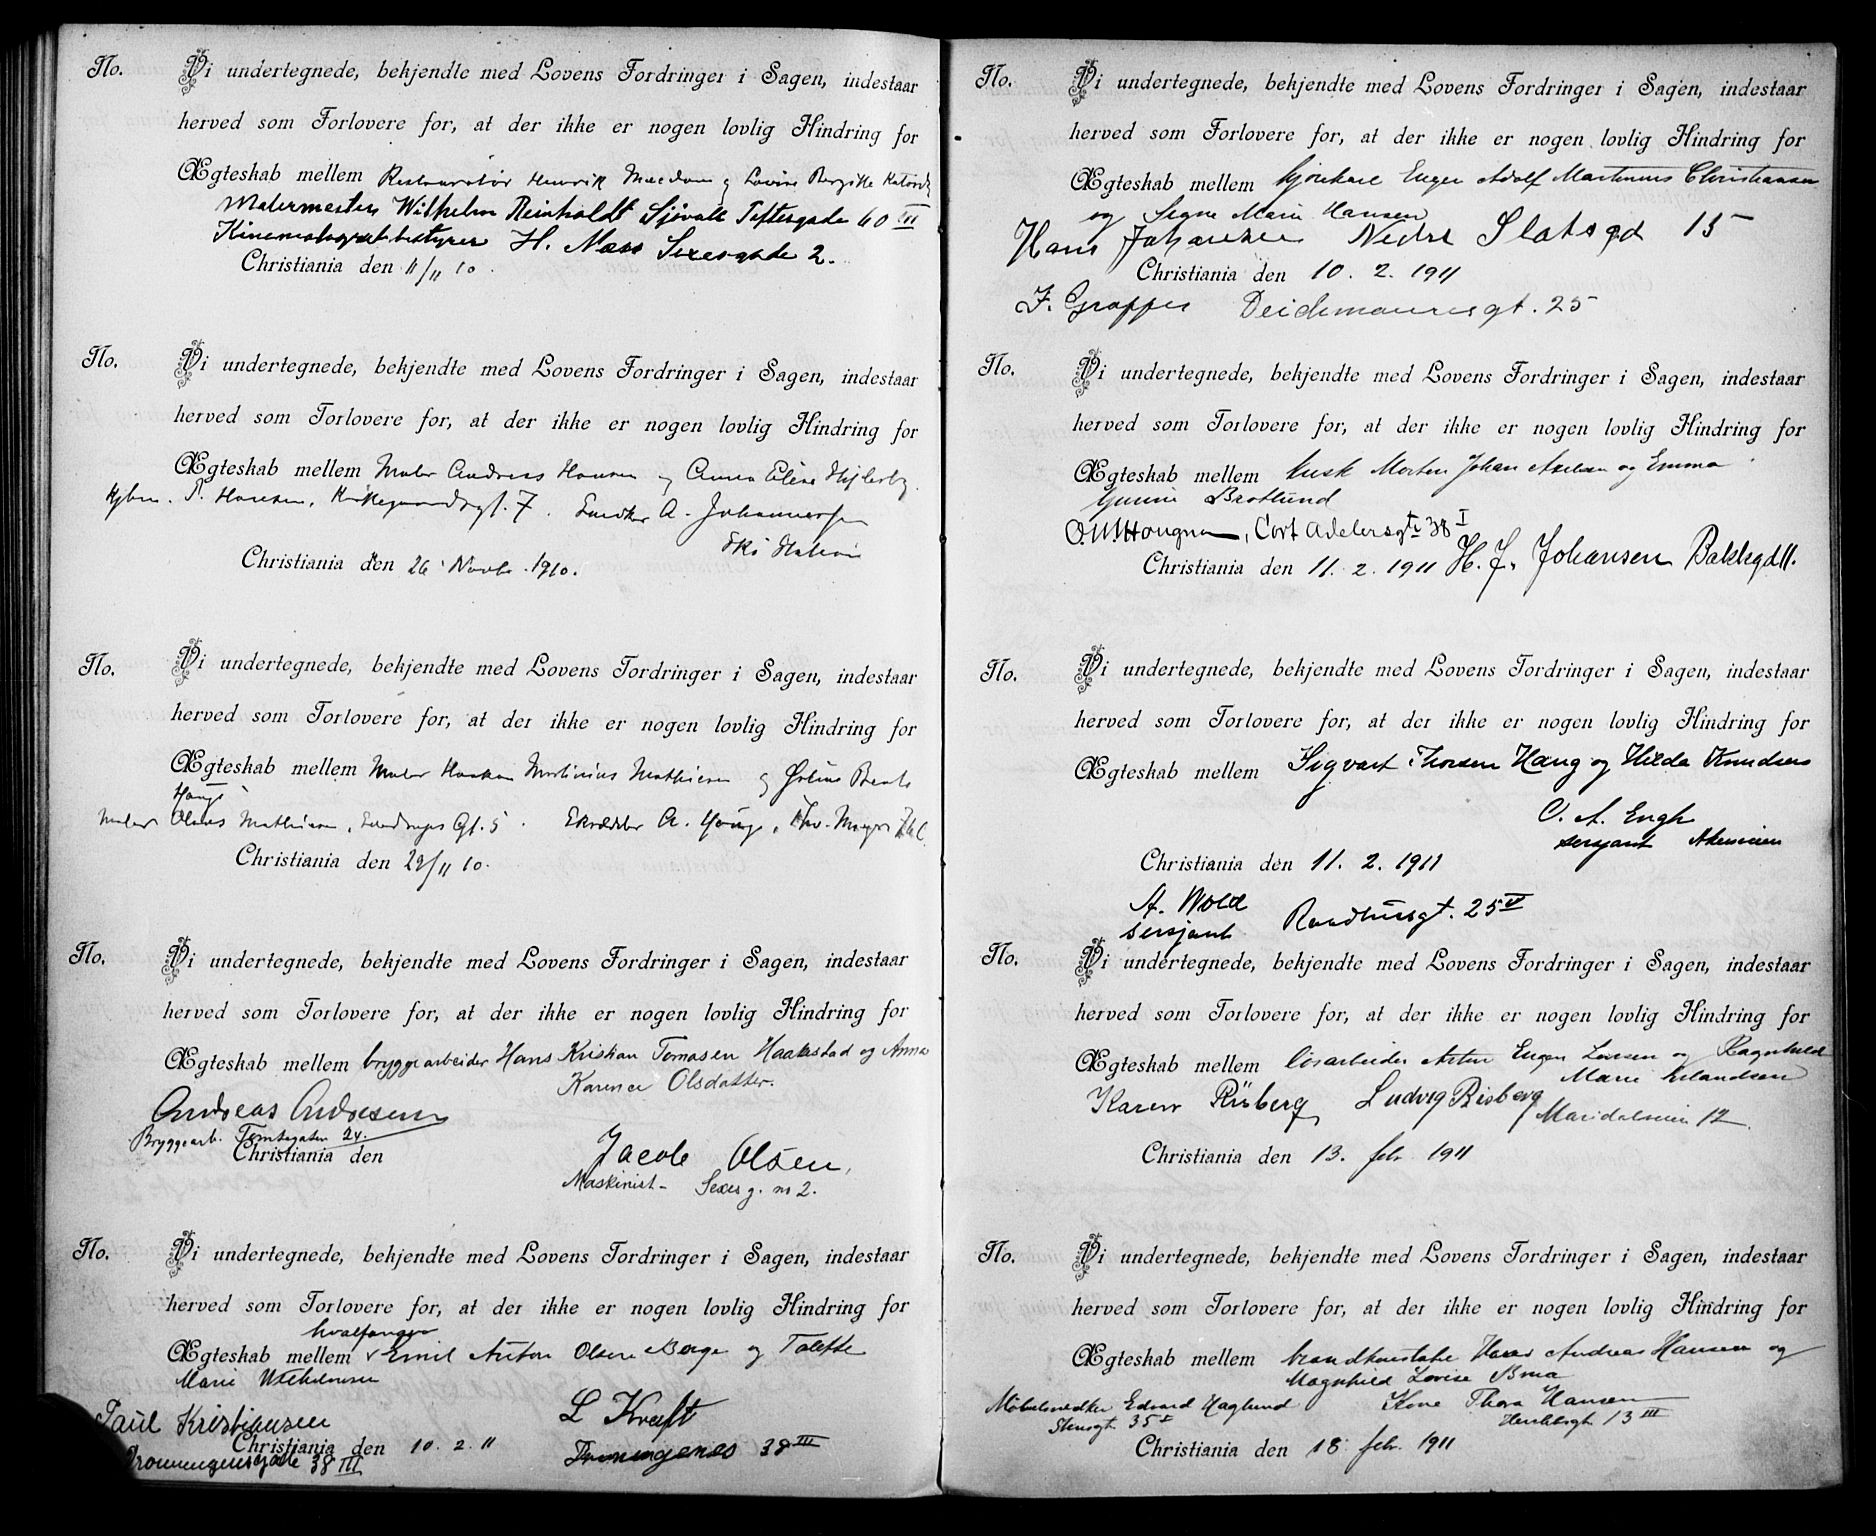 No. Vi undertegnede, bekjendte med Lovens Fordringer i Sagen, indestaar
herved som Forlovere for, at der ikke er nogen lovlig Hindring for
Ægteskab mellem Restauratør Henrik og Lovise Birgitte
Malermester Wilhelm Reinholdt Sjøvall Toftesgade 60 III
Kinematografbestyrer H. Moss Sexesgade 2.
Christiania den 11/11 10.
No. Vi undertegnede, bekjendte med Lovens Fordringer i Sagen, indestaar
herved som Forlovere for, at der ikke er nogen lovlig Hindring for
Ægteskab mellem Maler Andreas Hansen og Anna Eline
P. Hansen, Kirkegaardsgt. 7. A. Johannessen
Ski Station
Christiania den 26 Novbr. 1910.
No. Vi undertegnede, bekjendte med Lovens Fordringer i Sagen, indestaar
herved som Forlovere for, at der ikke er nogen lovlig Hindring for
Ægteskab mellem Maler Haakon Martinius Mathisen og
Hauge
Maler Olaves Mathisen, Gt. 5. Skrædder A. Hauge, Thv. Meyers
Christiania den 29/11 10.
No. Vi undertegnede, bekjendte med Lovens Fordringer i Sagen, indestaar
herved som Forlovere for, at der ikke er nogen lovlig Hindring for
Ægteskab mellem bryggearbeider Hans Kristian Tomasen Haakestad og Anna
Karence Olsdatter.
Andreas Andresen
Bryggearb. Tomtegaten 24.
Christiania den
Jacob Olsen,
Maskinist - Sexesg. no 2.
No. Vi undertegnede, bekjendte med Lovens Fordringer i Sagen, indestaar
herved som Forlovere for, at der ikke er nogen lovlig Hindring for
hvalfanger
Ægteskab mellem Emil Anton Olsen Berge og Talette
Marie Wilhelmsen
Paul Kristiansen L Kraft
Christiania den 10. 2. 11
Dronningensgate 38 III 38 III
No. Vi undertegnede, bekjendte med Lovens Fordringer i Sagen, indestaar
herved som Forlovere for, at der ikke er nogen lovlig Hindring for
Ægteskab mellem kjørekarl Enger Adolf Martinius Christiansen
og Signe Marie Hansen
Hans Johansen Nedre Slotsgd 15
Christiania den 10. 2. 1911
Deichmannsgt. 25
No. Vi undertegnede, bekjendte med Lovens Fordringer i Sagen, indestaar
herved som Forlovere for, at der ikke er nogen lovlig Hindring for
Ægteskab mellem kusk Morten Johan Axelsen og Emma
Gunine Bratlund
Cort Adelersgt 38 I
Christiania den 11. 2. 1911 H. J. Johansen Bakkegd 11.
No. Vi undertegnede, bekjendte med Lovens Fordringer i Sagen, indestaar
herved som Forlovere for, at der ikke er nogen lovlig Hindring for
Ægteskab mellem Sigvart Thorsen Haug og Hilda Knudsen
O. A. Engh
sersjant Akersveien
Christiania den 11. 2. 1911
A. Wold
sersjant Raadhusgt. 25 V
No. Vi undertegnede, bekjendte med Lovens Fordringer i Sagen, indestaar
herved som Forlovere for, at der ikke er nogen lovlig Hindring for
Ægteskab mellem løsarbeider Eugen Larsen og Ragnhild
Marie Erlandsen
Karen Risberg Ludvig Risberg
Maridalsveien 12
Christiania den 13. febr. 1911
No. Vi undertegnede, bekjendte med Lovens Fordringer i Sagen, indestaar
herved som Forlovere for, at der ikke er nogen lovlig Hindring for
Ægteskab mellem brandkonstabel Andreas Hansen og
Magnhild Lovise
Møbelsnedker Edvard Haglund Kone Thora Hansen
Stensgt 35 I Herslebsgt 13 III
Christiania den 18 febr. 1911